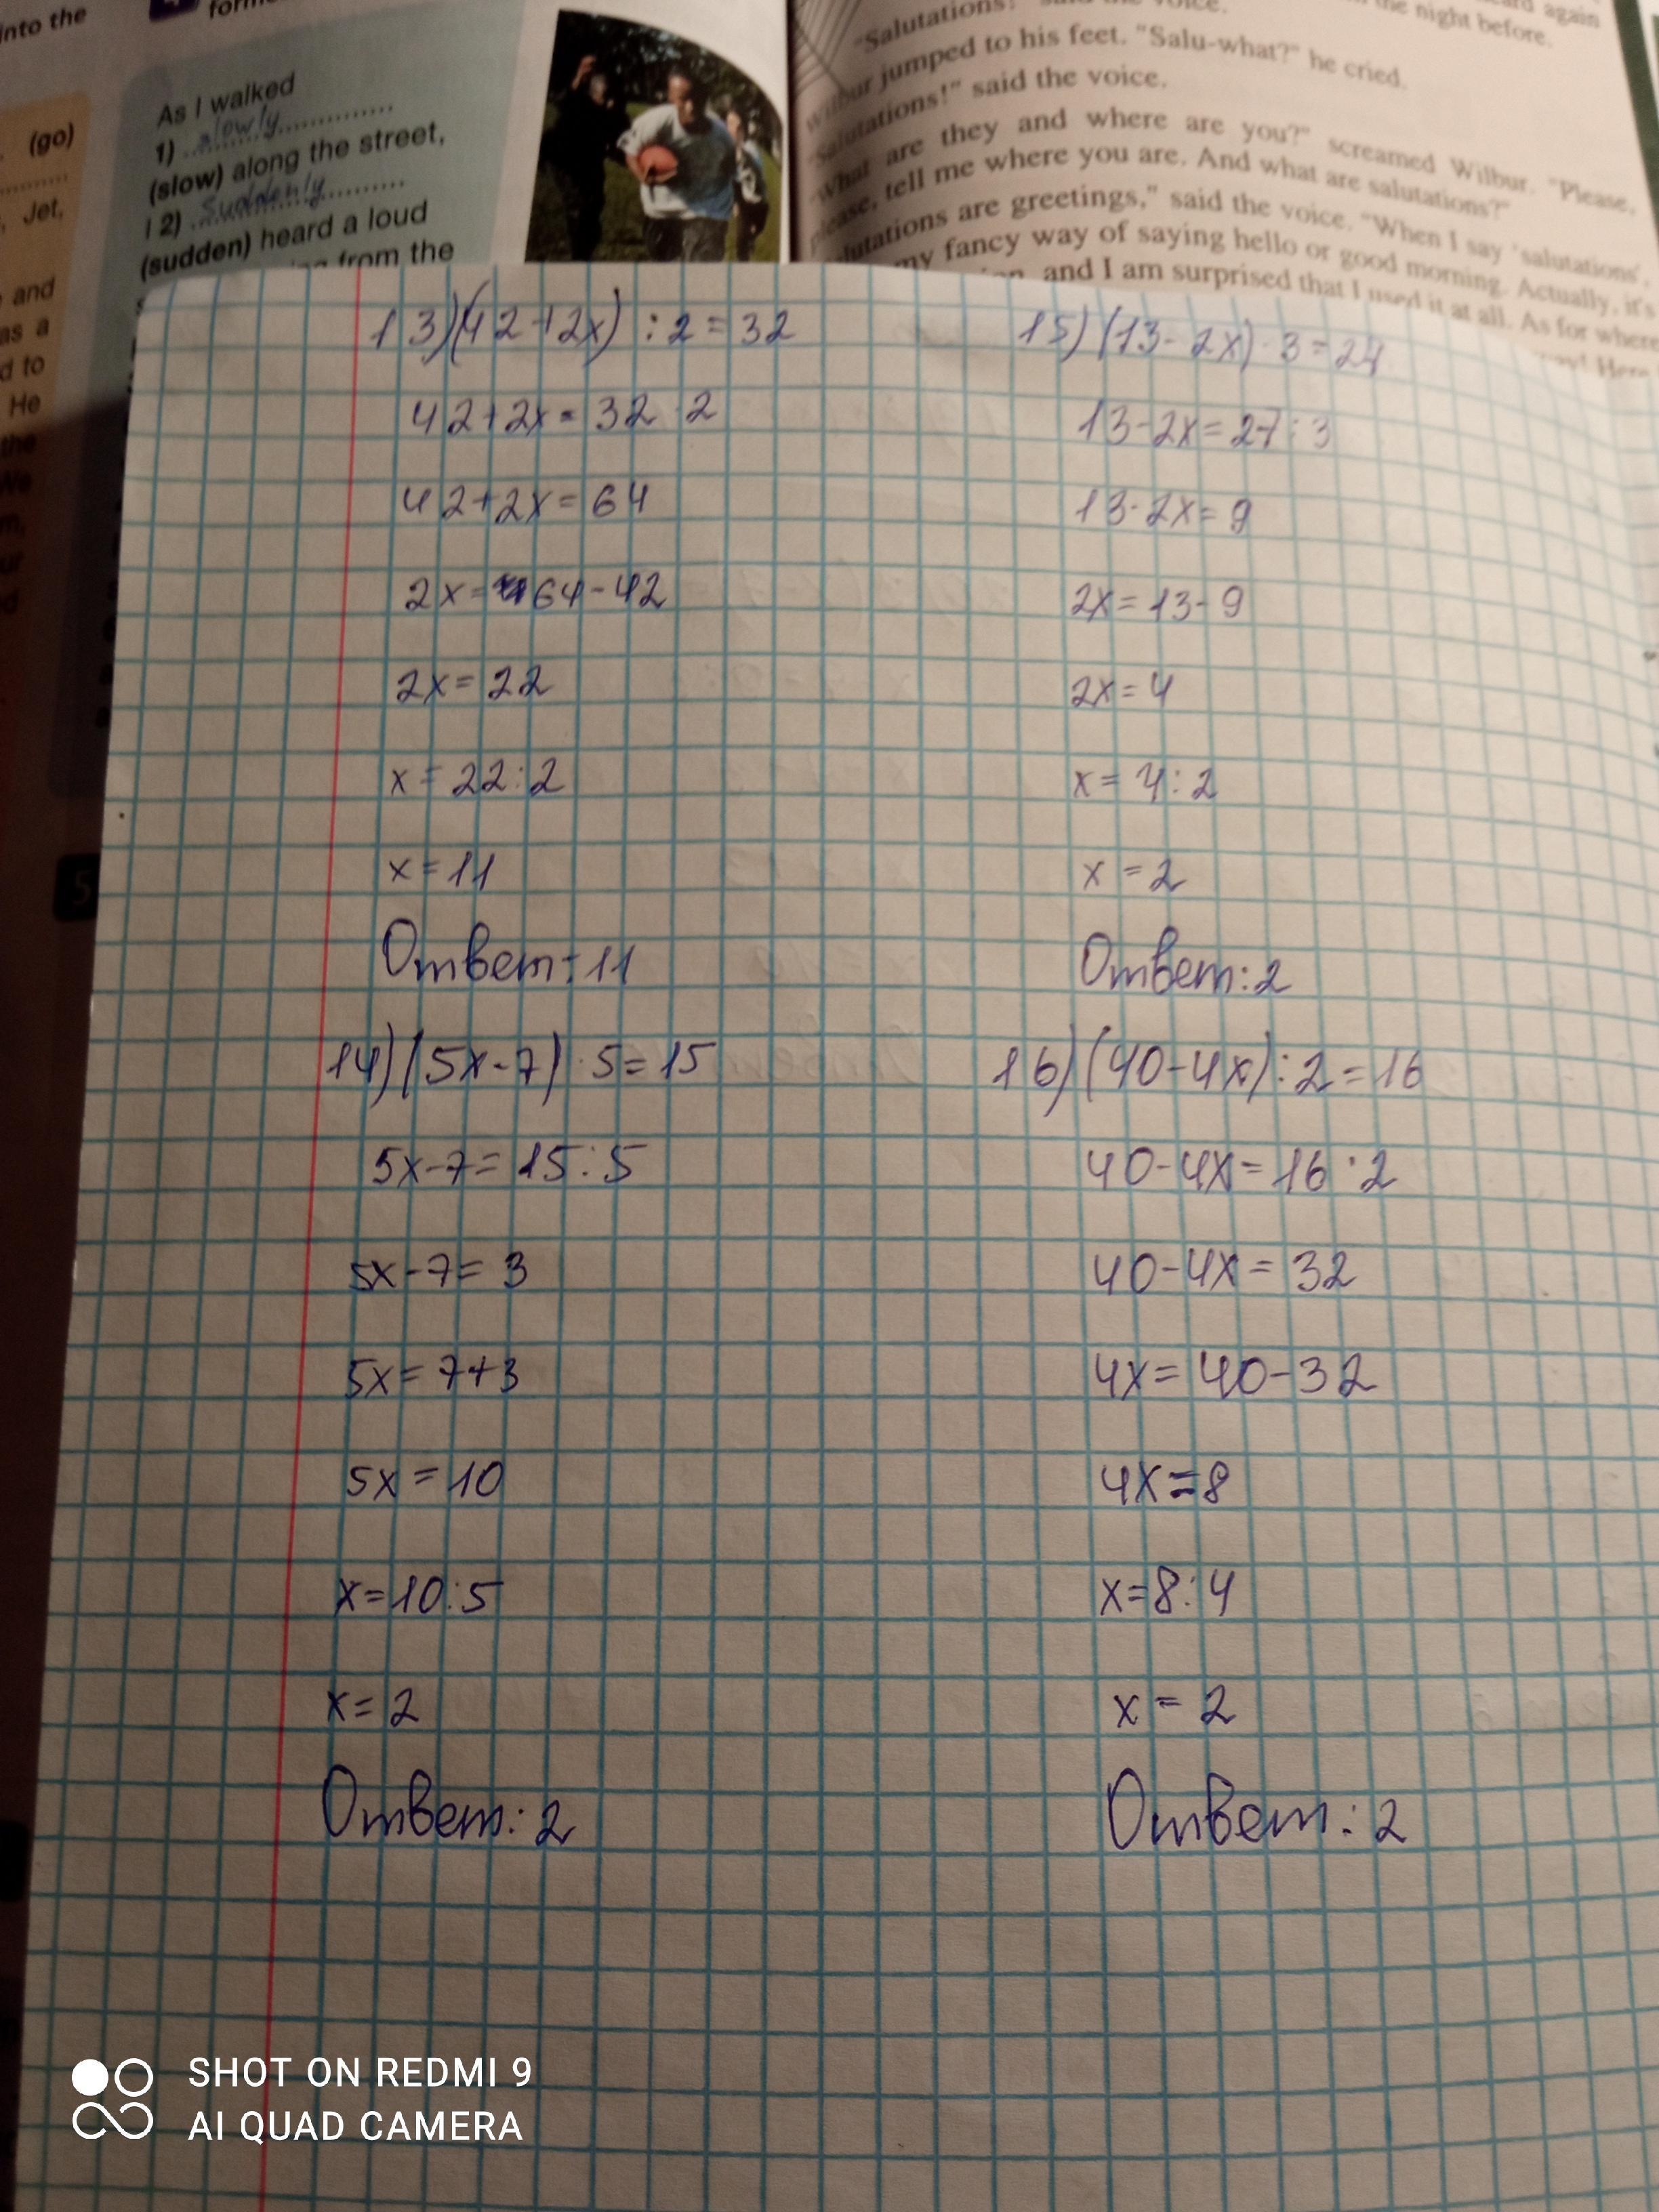 into the
(go)
Jet,
and
as a
d to
He
the
As I walked
1) slowly
(slow) along the street,
I 2) Suddenly
(sudden) heard a loud
from the
the night before.
again
"Salutations!" said the voice.
Wilbur jumped to his feet. "Salu-what?" he cried.
"Salutations!" said the voice.
"What are they and where are you?" screamed Wilbur. "Please,
please, tell me where you are. And what are salutations?"
"Salutations are greetings," said the voice. "When I say 'salutations',
my fancy way of saying hello or good morning. Actually, it's
and I am surprised that I used it at all. As for where
Here
5
13) (42+2x) : 2 = 32
42+2x = 32 · 2
42+2x = 64
2x = 64-42
2x = 22
x = 22:2
x = 11
Ответ: 11
14) (5x-7) · 5 = 15
5x-7 = 15:5
5x-7 = 3
5x = 7+3
5x = 10
x = 10:5
x = 2
Ответ: 2
15) (13-2x) · 3 = 27
13-2x = 27:3
13-2x = 9
2x = 13-9
2x = 4
x = 4:2
x = 2
Ответ: 2
16) (40-4x) : 2 = 16
40-4x = 16 · 2
40-4x = 32
4x = 40-32
4x = 8
x = 8:4
x = 2
Ответ: 2
SHOT ON REDMI 9
AI QUAD CAMERA